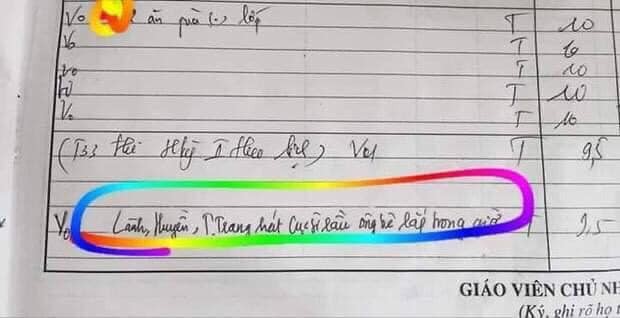 Vo ăn quà (..) lớp T 10
Vo T 10
Vo T 10
Vo T 10
Vo T 10
(T33 thi Hkỳ I theo lịch) T 9,5
Vo Lành, Huyền, T.Trang hát Cục sì lầu ông bê lắp trong giờ T 9,5
GIÁO VIÊN CHỦ NH
(Ký, ghi rõ họ t